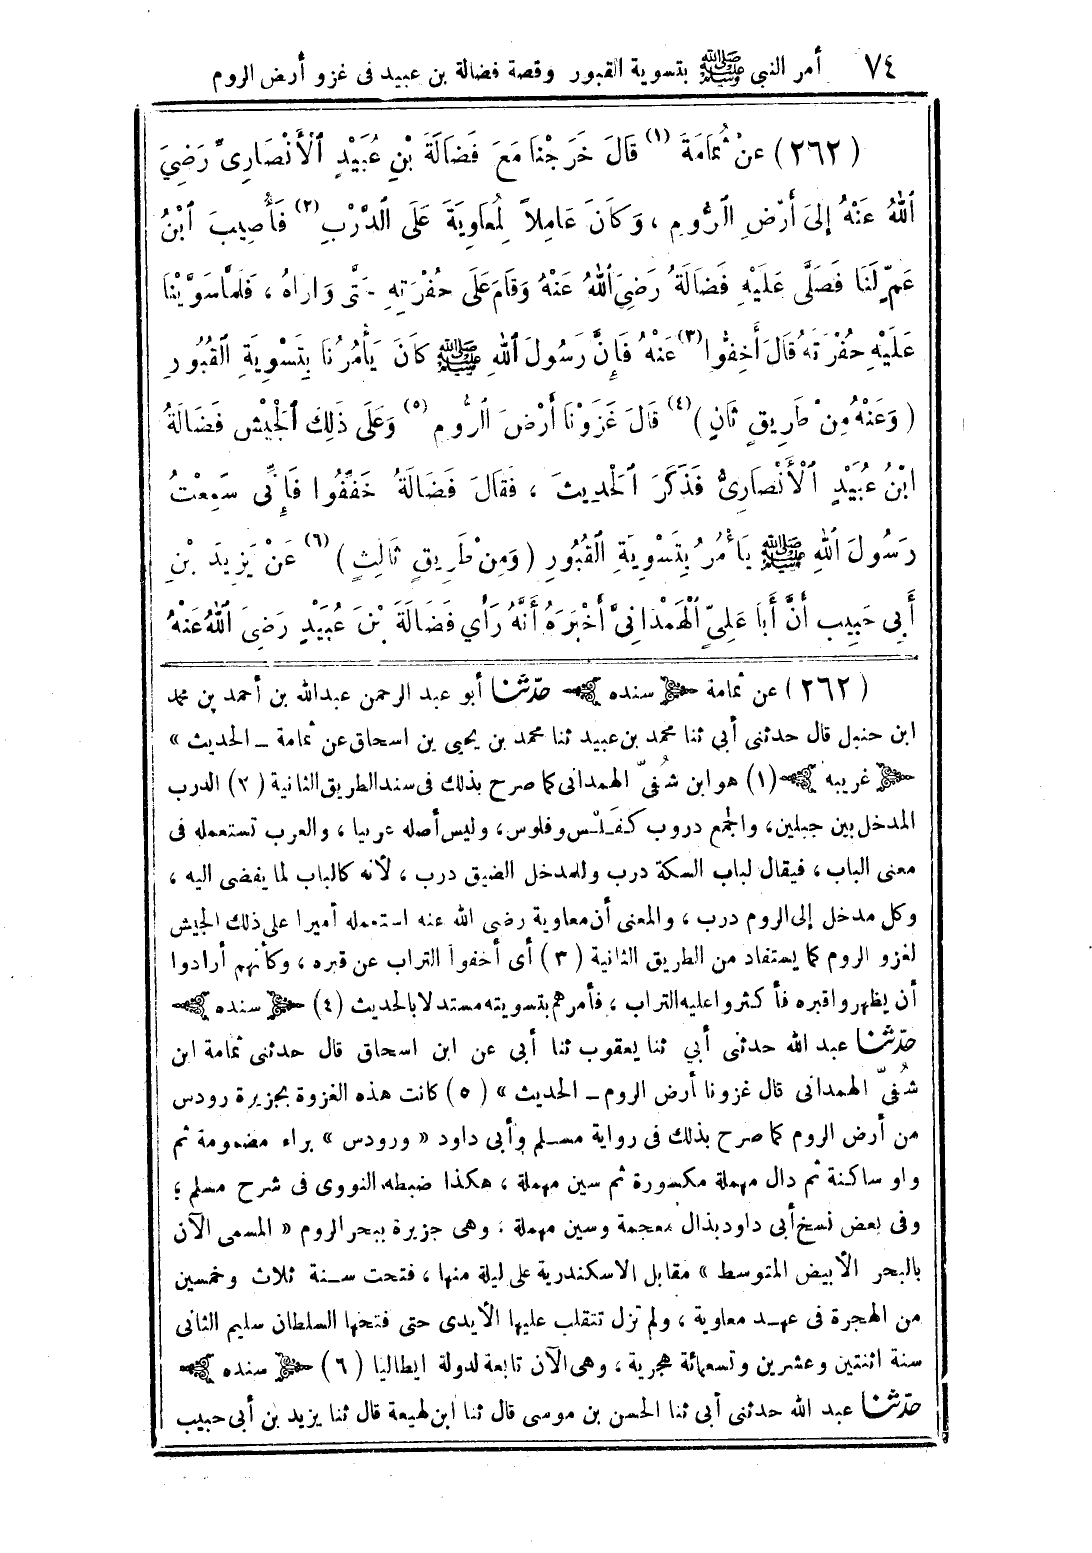 ٧٤ أمر النبي ﷺ بتسوية القبور وقصة فضالة بن عبيد فى غزو أرض الروم
(٢٦٢) عَنْ ثُمَامَةَ (١) قَالَ خَرَجْنَا مَعَ فَضَالَةَ بْنِ عُبَيْدٍ ٱلْأَنْصَارِىِّ رَضِيَ
ٱللهُ عَنْهُ إِلَى أَرْضِ ٱلرُّومِ ، وَكَانَ عَامِلاً لِمُعَاوِيَةَ عَلَى ٱلدَّرْبِ (٢) فَأُصِيبَ ٱبْنُ
عَمٍّ لَنَا فَصَلَّى عَلَيْهِ فَضَالَةُ رَضِيَ ٱللهُ عَنْهُ وَقَامَ عَلَى حُفْرَتِهِ حَتَّى وَارَاهُ ، فَلَمَّا سَوَّيْنَا
عَلَيْهِ حُفْرَتَهُ قَالَ أَخِفُّوا (٣) عَنْهُ فَإِنَّ رَسُولَ ٱللهِ ﷺ كَانَ يَأْمُرُنَا بِتَسْوِيَةِ ٱلْقُبُورِ
(وَعَنْهُ مِنْ طَرِيقٍ ثَانٍ) (٤) قَالَ غَزَوْنَا أَرْضَ ٱلرُّومِ (٥) وَعَلَى ذَلِكَ ٱلْجَيْشِ فَضَالَةُ
ابْنُ عُبَيْدٍ ٱلْأَنْصَارِىُّ فَذَكَرَ ٱلْحَدِيثَ ، فَقَالَ فَضَالَةُ خَفِّفُوا فَإِنِّى سَمِعْتُ
رَسُولَ ٱللهِ ﷺ يَأْمُرُ بِتَسْوِيَةِ ٱلْقُبُورِ (وَمِنْ طَرِيقٍ ثَالِثٍ) (٦) عَنْ يَزِيدَ بْنِ
أَبِى حَبِيبٍ أَنَّ أَبَا عَلِيٍّ ٱلْهَمْدَانِىَّ أَخْبَرَهُ أَنَّهُ رَأَى فَضَالَةَ بْنَ عُبَيْدٍ رَضِىَ ٱللهُ عَنْهُ
(٢٦٢) عن ثمامة ﴿ سنده ﴾ حدّثنا أبو عبد الرحمن عبدالله بن أحمد بن محمد
ابن حنبل قال حدثنى أبي ثنا محمد بن عبيد ثنا محمد بن يحيى بن اسحاق عن ثمامة ــ الحديث »
﴿ غريبه ﴾ (١) هو ابن شُفىّ الهمدانى كما صرح بذلك فى سند الطريق الثانية (٢) الدرب
المدخل بين جبلين، والجمع دروب كفَلْس وفلوس، وليس أصله عربيا ، والعرب تستعمله فى
معنى الباب ، فيقال لباب السكة درب وللمدخل الضيق درب ، لأنه كالباب لما يفضى اليه ،
وكل مدخل إلى الروم درب ، والمعنى أن معاوية رضى الله عنه استعمله أميرا على ذلك الجيش
لغزو الروم كما يستفاد من الطريق الثانية (٣) أى أخفوا التراب عن قبره ، وكأنهم أرادوا
أن يظهروا قبره فأكثروا عليه التراب ، فأمرهم بتسويته مستدلا بالحديث (٤) ﴿ سنده ﴾
حدّثنا عبد الله حدثنى أبي ثنا يعقوب ثنا أبى عن ابن اسحاق قال حدثنى ثمامة ابن
شُفىّ الهمدانى قال غزونا أرض الروم ــ الحديث » (٥) كانت هذه الغزوة بجزيرة رودس
من أرض الروم كما صرح بذلك فى رواية مسلم وأبى داود « ورودس » براء مضمومة ثم
واو ساكنة ثم دال مهملة مكسورة ثم سين مهملة ، هكذا ضبطه النووى فى شرح مسلم ؛
وفى بعض نسخ أبى داود بذال معجمة وسين مهملة ، وهى جزيرة ببحر الروم « المسمى الآن
بالبحر الأبيض المتوسط » مقابل الاسكندرية على ليلة منها ، فتحت سنة ثلاث وخمسين
من الهجرة فى عهد معاوية ، ولم تزل تتقلب عليها الأيدى حتى فتحها السلطان سليم الثانى
سنة اثنتين وعشرين وتسعمائة هجرية ، وهى الآن تابعة لدولة ايطاليا (٦) ﴿ سنده ﴾
حدّثنا عبد الله حدثنى أبى ثنا الحسن بن موسى قال ثنا ابن لهيعة قال ثنا يزيد بن أبى حبيب